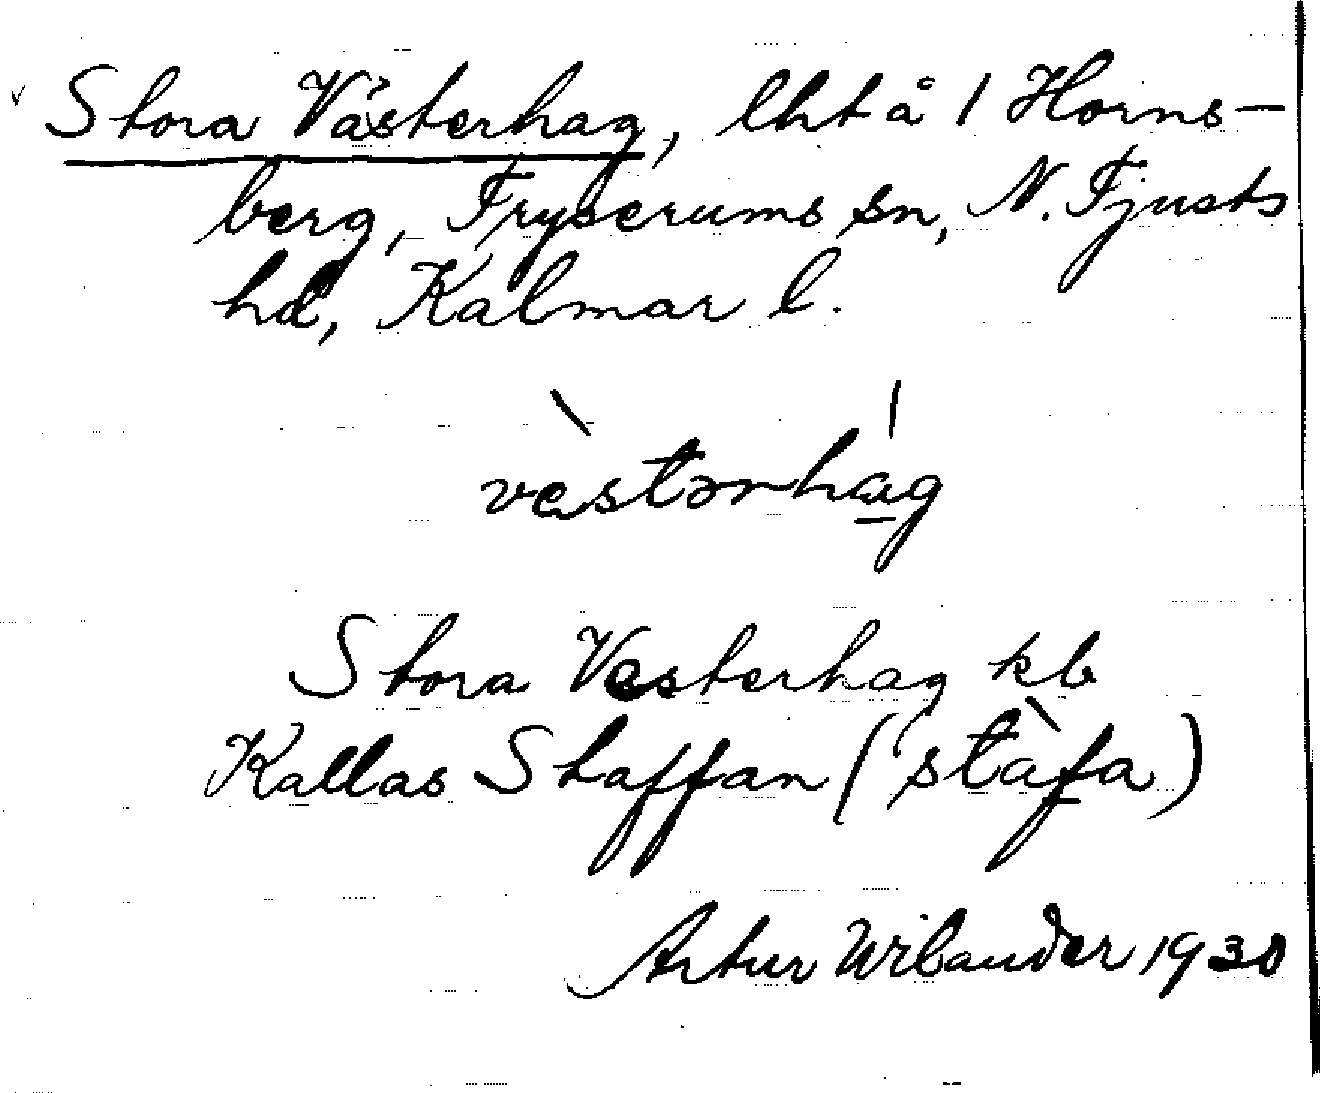 Stora Västerhag, lht å 1 Horns-
berg, Fryserums sn, N. Tjusts
hd, Kalmar l.
västərhag
Stora Vesterhag kb
Kallas Staffan (stafa)
Artur Wilander 1930